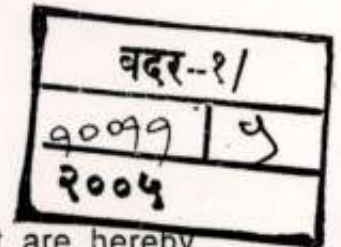 वदर--१/
१०७१ | ५
२००५
t are hereby